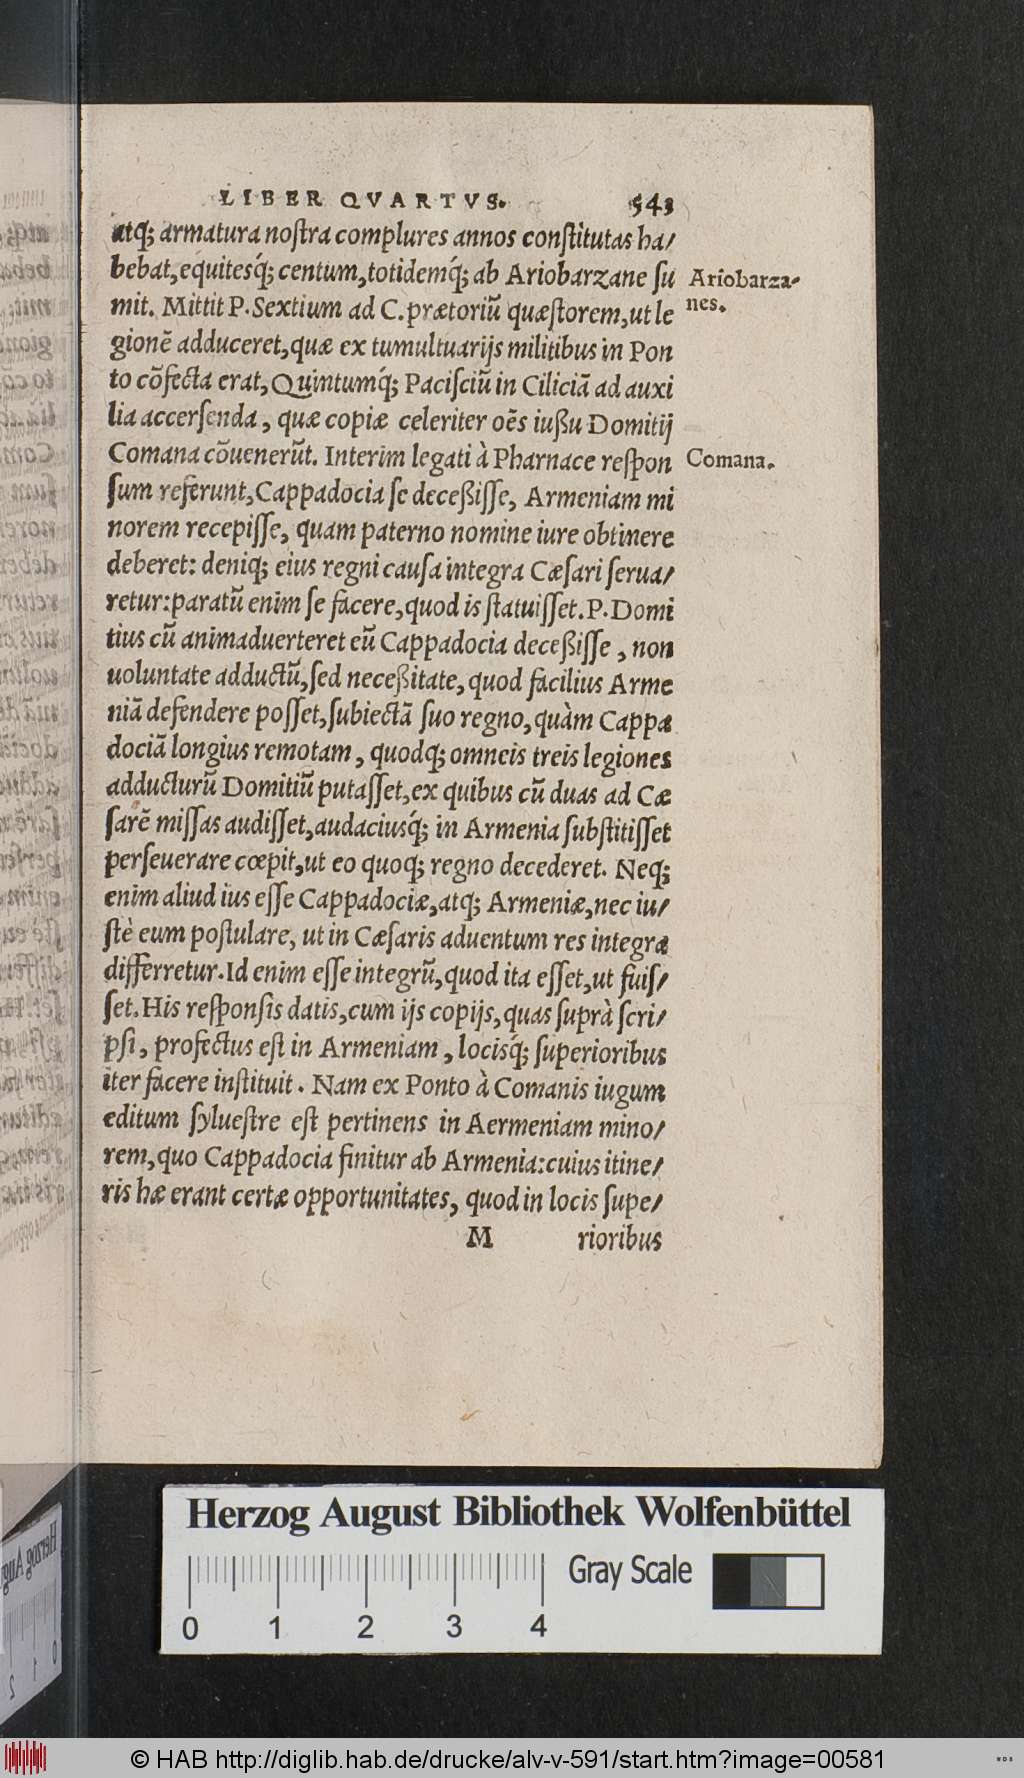 LIBER QVARTVS. 543
atq; armatura noſtra complures annos conſtitutas ha/
bebat, equitesq́; centum, totidemq́; ab Ariobarzane ſu
Ariobarza-
nes.
mit. Mittit P. Sextium ad C. prætoriũ quæſtorem, ut le
gionẽ adduceret, quæ ex tumultuarijs militibus in Pon
to cõfecta erat, Quintumq́; Paciſciũ in Ciliciã ad auxi
lia accerſenda, quæ copiæ celeriter oẽs iußu Domitij
Comana cõuenerũt. Interim legati à Pharnace reſpon
Comana.
ſum referunt, Cappadocia ſe deceßiſſe, Armeniam mi
norem recepiſſe, quam paterno nomine iure obtinere
deberet: deniq; eius regni cauſa integra Cæſari ſerua/
retur: paratũ enim ſe facere, quod is ſtatuiſſet. P. Domi
tius cũ animaduerteret eũ Cappadocia deceßiſſe, non
uoluntate adductũ, ſed neceßitate, quod facilius Arme
niã defendere poſſet, ſubiectã ſuo regno, quàm Cappa
dociã longius remotam, quodq; omneis treis legiones
adducturũ Domitiũ putaſſet, ex quibus cũ duas ad Cæ
ſarẽ miſſas audiſſet, audaciusq́; in Armenia ſubſtitiſſet
perſeuerare cœpit, ut eo quoq; regno decederet. Neq;
enim aliud ius eſſe Cappadociæ, atq; Armeniæ, nec iu/
ſtè eum poſtulare, ut in Cæſaris aduentum res integra
differretur. Id enim eſſe integrũ, quod ita eſſet, ut fuiſ/
ſet. His reſponſis datis, cum ijs copijs, quas ſuprà ſcri/
pſi, profectus eſt in Armeniam, locisq́; ſuperioribus
iter facere inſtituit. Nam ex Ponto à Comanis iugum
editum ſylueſtre eſt pertinens in Aermeniam mino/
rem, quo Cappadocia finitur ab Armenia: cuius itine/
ris hæ erant certæ opportunitates, quod in locis ſupe/
M rioribus
Herzog August Bibliothek Wolfenbüttel
Gray Scale
0 1 2 3 4
© HAB http://diglib.hab.de/drucke/alv-v-591/start.htm?image=00581